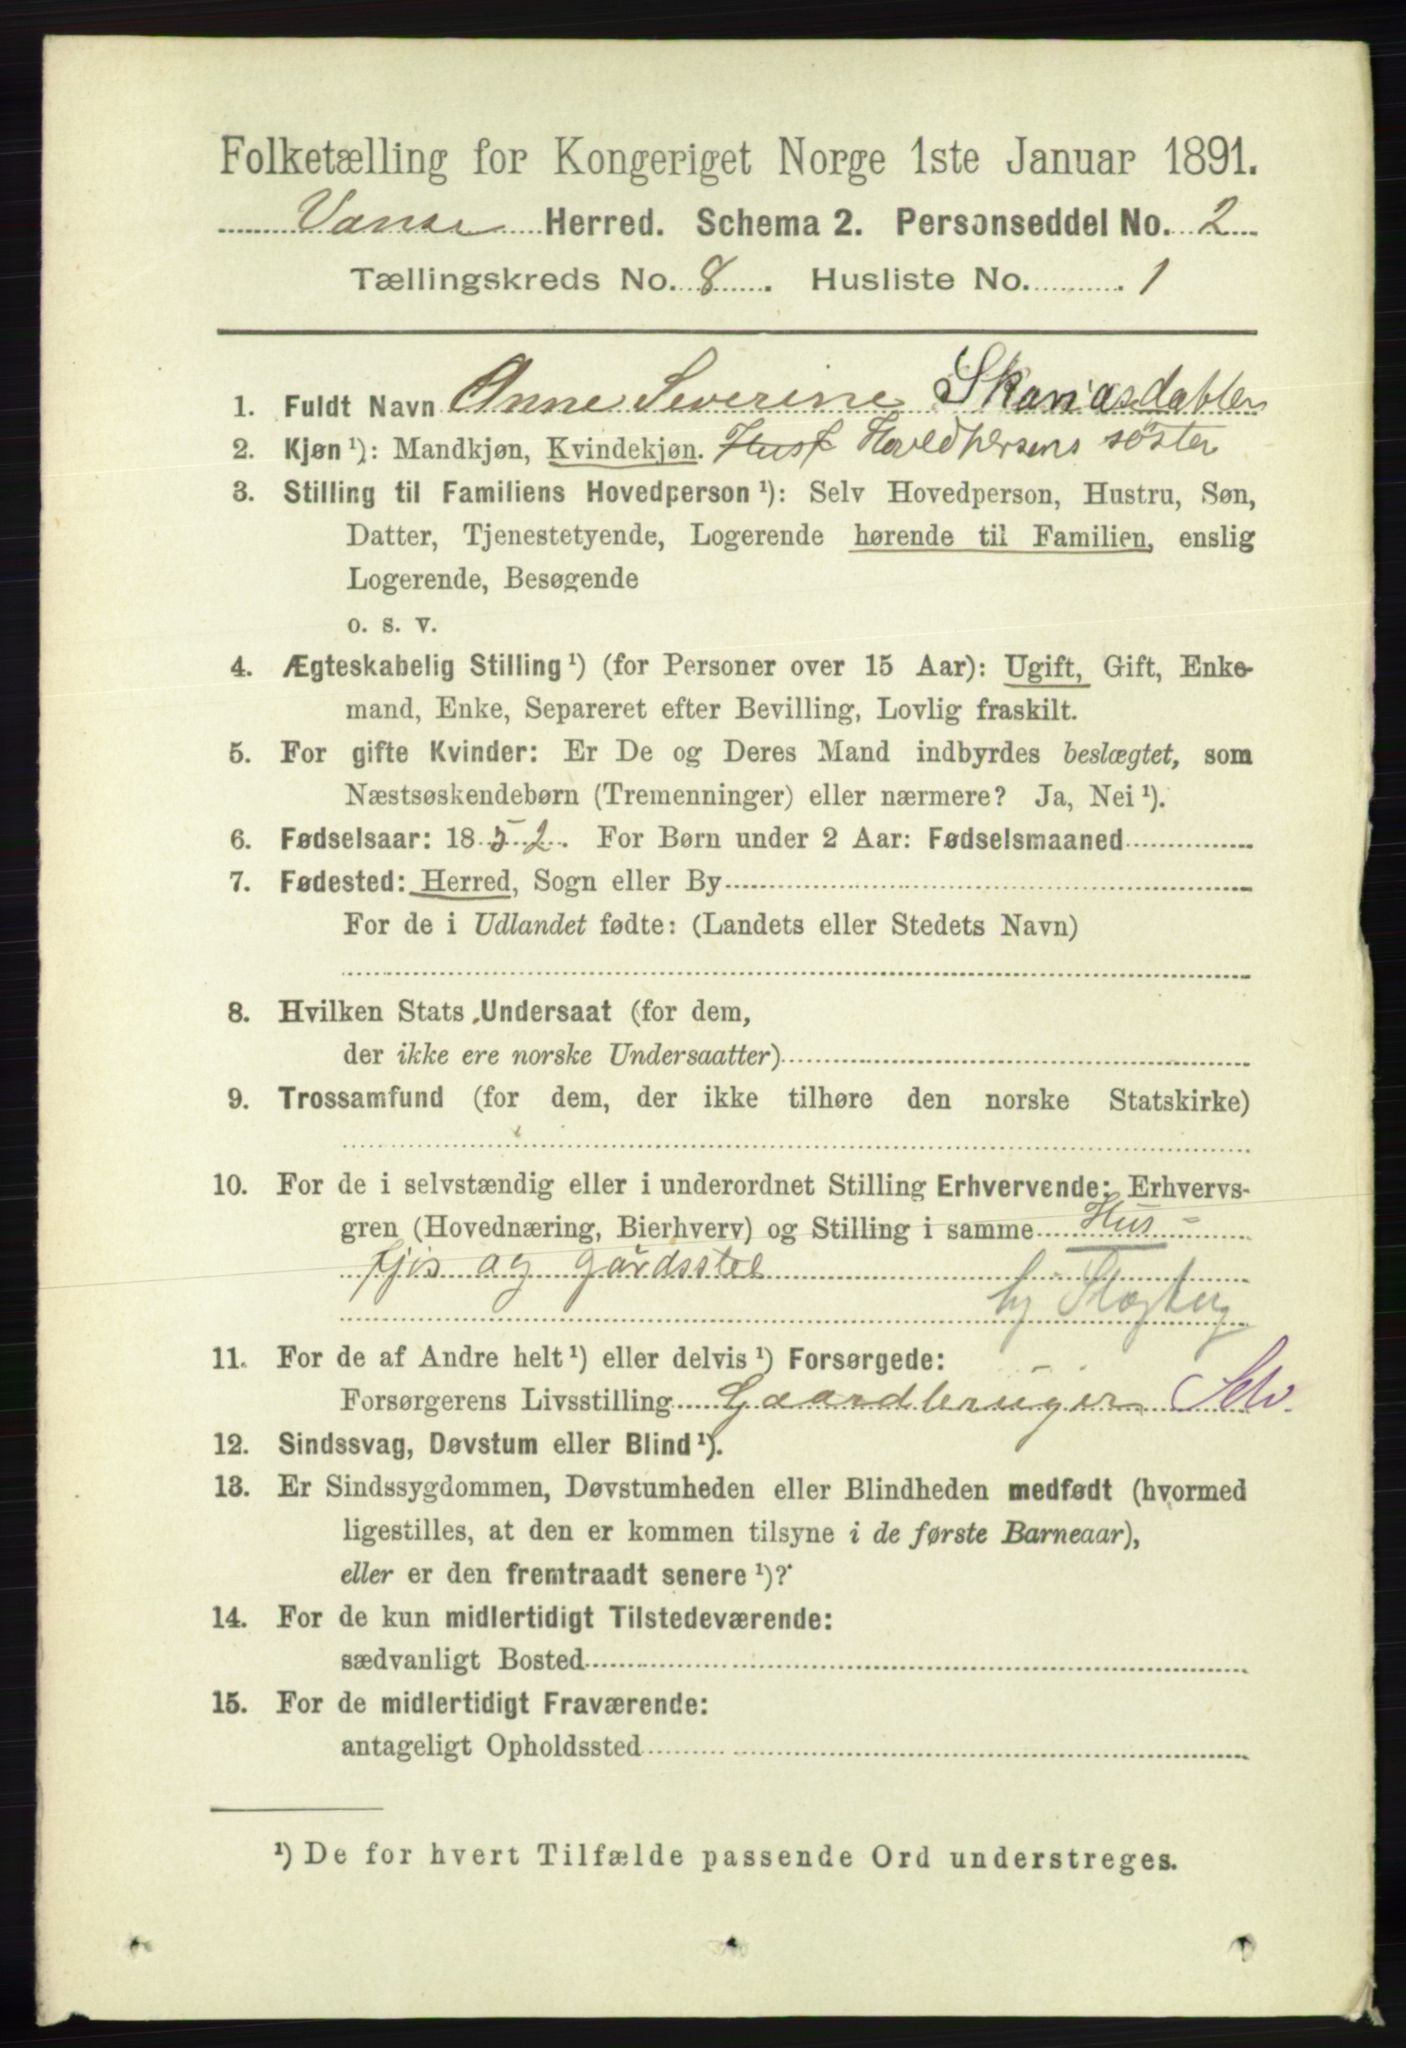 Folketælling for Kongeriget Norge 1ste Januar 1891.
Vanse Herred. Schema 2. Personseddel No. 2
Tællingskreds No. 8. Husliste No. 1
1. Fuldt Navn Anne Severine
2. Kjøn¹): Mandkjøn, Kvindekjøn. Husf Hovedpersens søster
3. Stilling til Familiens Hovedperson¹): Selv Hovedperson, Hustru, Søn,
Datter, Tjenestetyende, Logerende hørende til Familien, enslig
Logerende, Besøgende
o. s. v.
4. Ægteskabelig Stilling¹) (for Personer over 15 Aar): Ugift, Gift, Enke-
mand, Enke, Separeret efter Bevilling, Lovlig fraskilt.
5. For gifte Kvinder: Er De og Deres Mand indbyrdes beslægtet, som
Næstsøskendebørn (Tremenninger) eller nærmere? Ja, Nei¹).
6. Fødselsaar: 1852. For Børn under 2 Aar: Fødselsmaaned
7. Fødested: Herred, Sogn eller By
For de i Udlandet fødte: (Landets eller Stedets Navn)
8. Hvilken Stats Undersaat (for dem,
der ikke ere norske Undersaatter)
9. Trossamfund (for dem, der ikke tilhøre den norske Statskirke)
10. For de i selvstændig eller i underordnet Stilling Erhvervende: Erhvervs-
gren (Hovednæring, Bierhverv) og Stilling i samme Hus-
fjøs og gårdsstel
11. For de af Andre helt¹) eller delvis¹) Forsørgede:
Forsørgerens Livsstilling Gaardbruger Selv.
12. Sindssvag, Døvstum eller Blind¹).
13. Er Sindssygdommen, Døvstumheden eller Blindheden medfødt (hvormed
ligestilles, at den er kommen tilsyne i de første Barneaar),
eller er den fremtraadt senere¹)?
14. For de kun midlertidigt Tilstedeværende:
sædvanligt Bosted
15. For de midlertidigt Fraværende:
antageligt Opholdssted
¹) De for hvert Tilfælde passende Ord understreges.